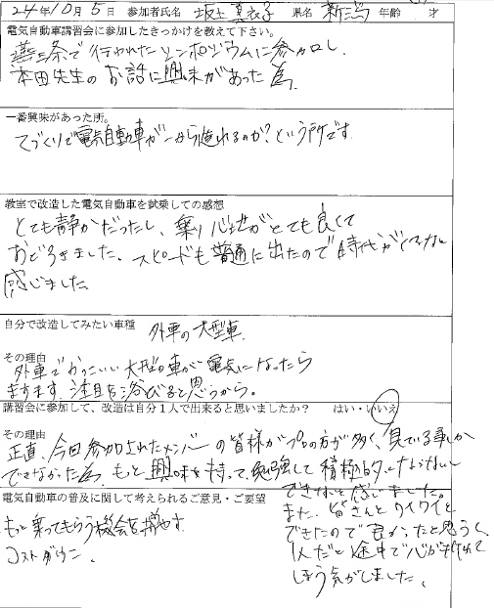 24年10月5 参加者氏名 坂上真衣子 県名 新潟 年齢 才
電気自動車講習会に参加したきっかけを教えて下さい。
燕三条で行われたシンポジウムに参加し、
本田先生のお話に興味があった為
一番興味があった所。
てづくりで電気自動車が一から造れるのか?という所です
教室で改造した電気自動車を試乗しての感想
とても静かだったし、乗り心地がとても良くて
おどろきました。スピードも普通に出たので時代がくると
感じました
自分で改造してみたい車種 外車の大型車
その理由
外車でかっこいい大型の車が電気になったら
ますます注目を浴びると思うから。
講習会に参加して、改造は自分1人で出来ると思いましたか? はい・いいえ
その理由
正直、今回参加されたメンバーの皆様がプロの方が多く、見ている事しか
できなかった為、もっと興味を持って、勉強して積極的にならないと
できないと感じました。
また、皆さんとワイワイと
できたので良かったと思うし、
1人だと途中で心が折れて
しまう気がしました。
電気自動車の普及に関して考えられるご意見・ご要望
もっと乗ってもらう機会を増やす
コストダウン